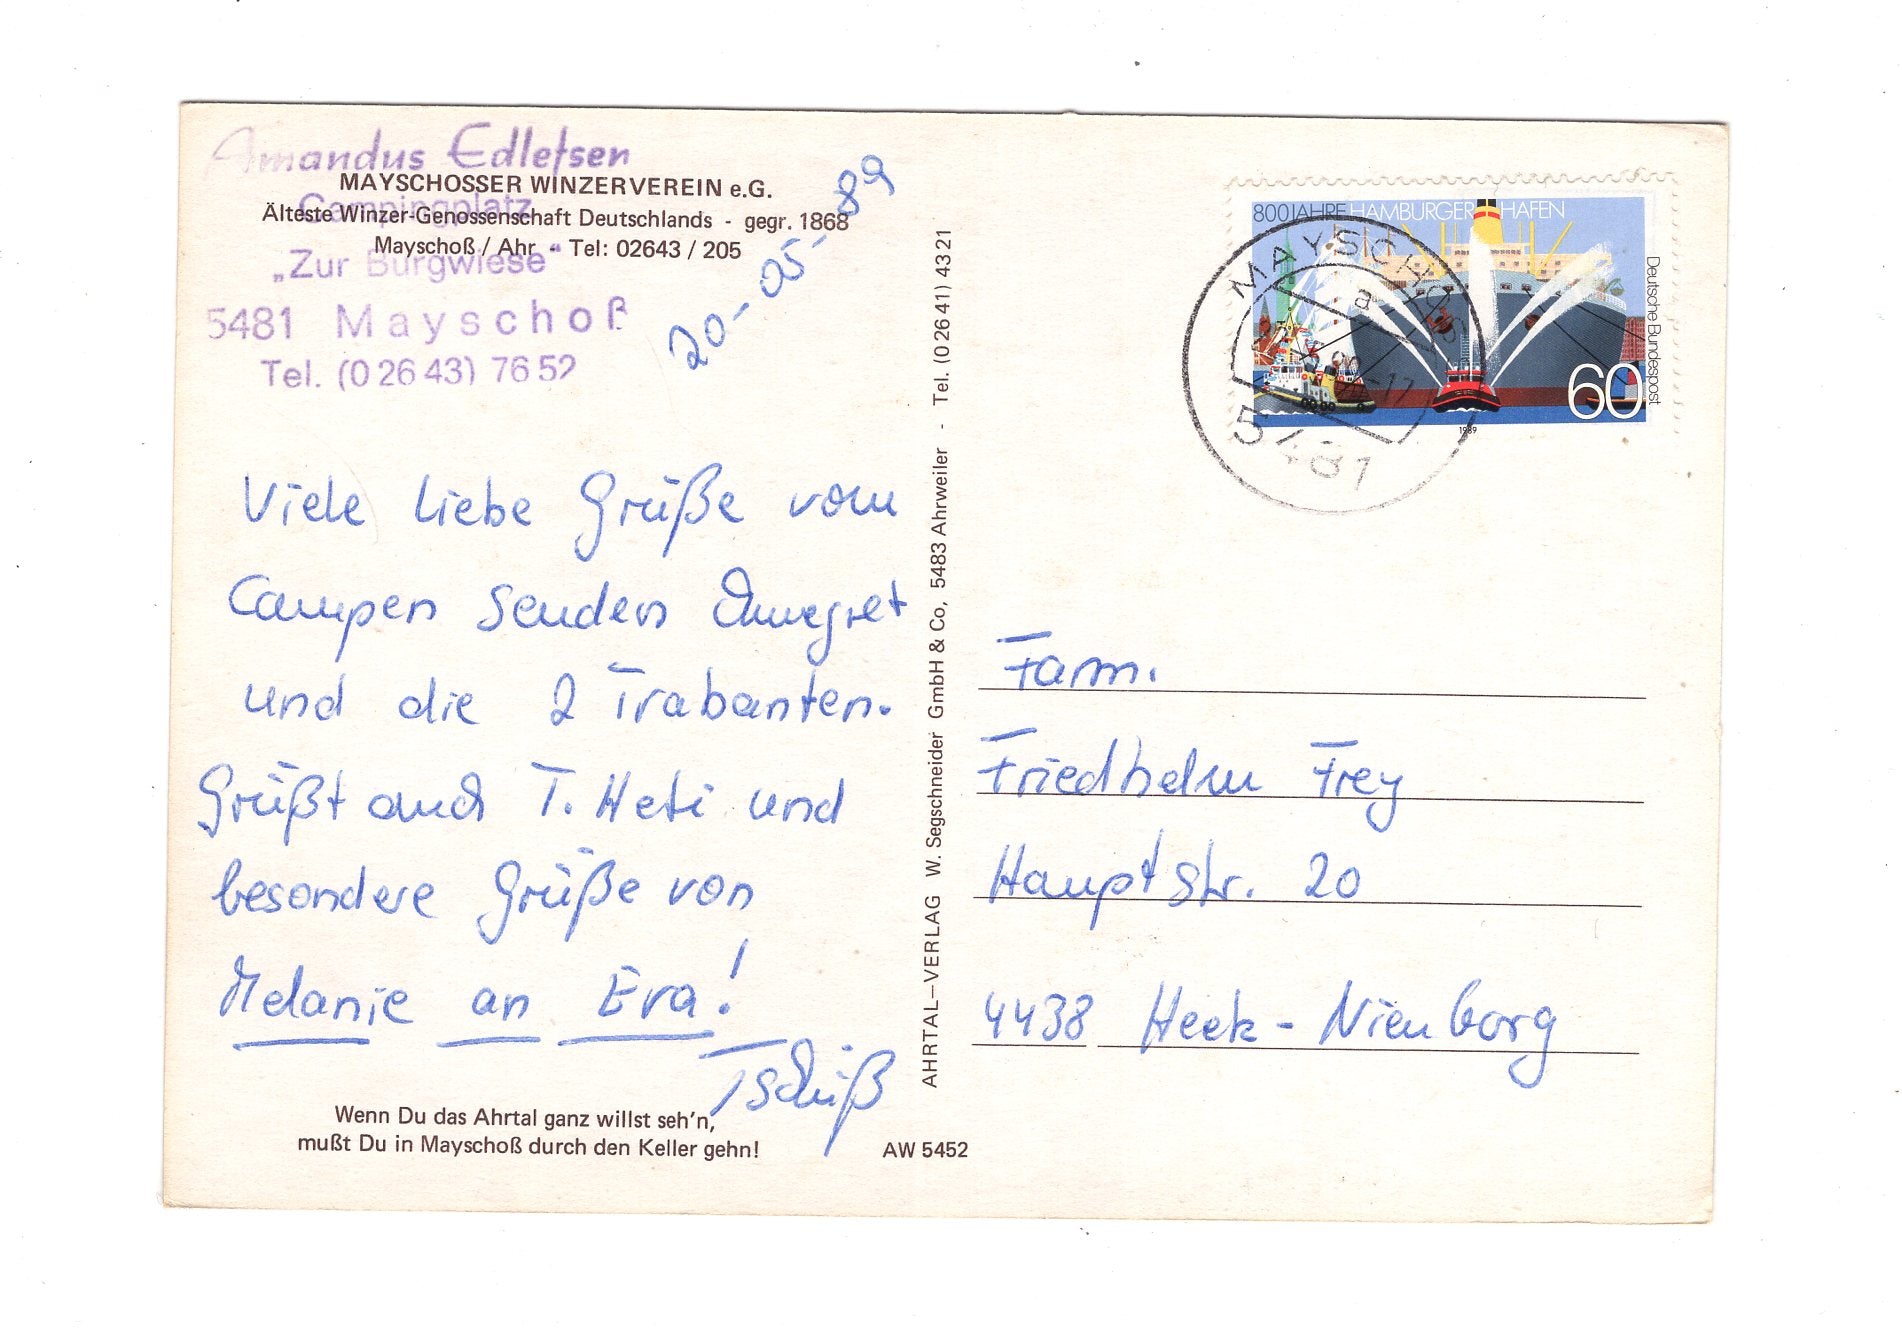 Amandus Edletsen
MAYSCHOSSER WINZERVEREIN e.G.
Campingplatz
Älteste Winzer-Genossenschaft Deutschlands - gegr. 1868
Mayschoß / Ahr - Tel: 02643 / 205
„Zur Burgwiese"
5481 Mayschoß
Tel. (0 26 43) 76 52
20-05-89
Viele liebe Grüße vom
Campen senden Annegret
und die 2 Trabanten.
Grüßt auch T. Heti und
besondere Grüße von
Melanie an Eva!
Tschüß
Wenn Du das Ahrtal ganz willst seh'n,
mußt Du in Mayschoß durch den Keller gehn!
AW 5452
AHRTAL–VERLAG W. Segschneider GmbH & Co, 5483 Ahrweiler - Tel. (0 26 41) 43 21
800 JAHRE HAMBURGER HAFEN
Deutsche Bundespost
60
1989
MAYSCHOSS
a
5481
Fam.
Friedhelm Frey
Hauptstr. 20
4438 Heek - Nienborg